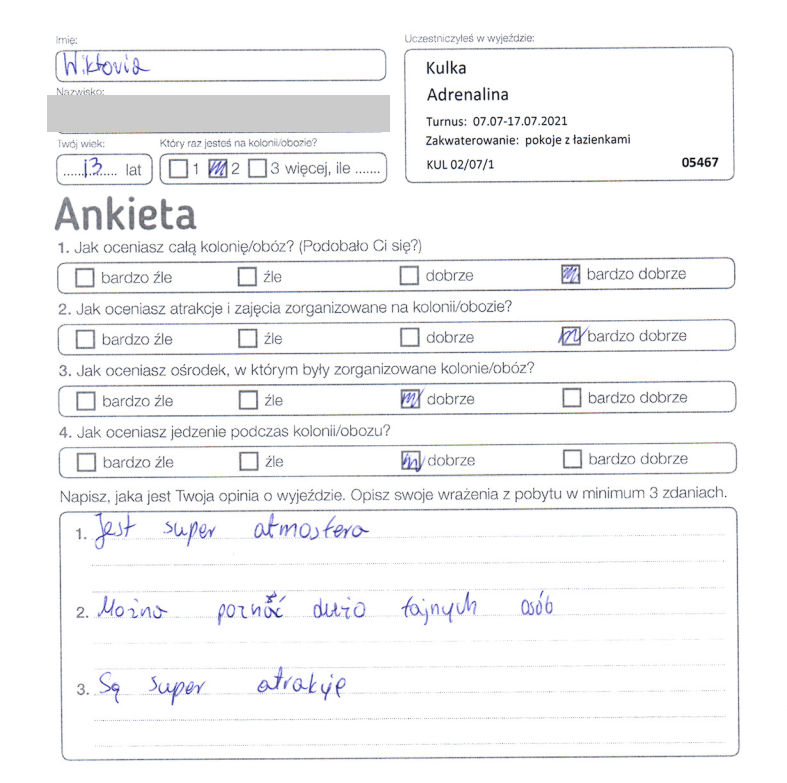 Imię:
Wiktoria
Nazwisko:
Twój wiek:
Który raz jesteś na kolonii/obozie?
13 lat
1 2 3 więcej, ile .......
Uczestniczyłeś w wyjeździe:
Kulka
Adrenalina
Turnus: 07.07-17.07.2021
Zakwaterowanie: pokoje z łazienkami
KUL 02/07/1 05467
Ankieta
1. Jak oceniasz całą kolonię/obóz? (Podobało Ci się?)
bardzo źle źle dobrze bardzo dobrze
2. Jak oceniasz atrakcje i zajęcia zorganizowane na kolonii/obozie?
bardzo źle źle dobrze bardzo dobrze
3. Jak oceniasz ośrodek, w którym były zorganizowane kolonie/obóz?
bardzo źle źle dobrze bardzo dobrze
4. Jak oceniasz jedzenie podczas kolonii/obozu?
bardzo źle źle dobrze bardzo dobrze
Napisz, jaka jest Twoja opinia o wyjeździe. Opisz swoje wrażenia z pobytu w minimum 3 zdaniach.
1. Jest super atmosfera
2. Można poznać dużo fajnych osób
3. Są super atrakcje